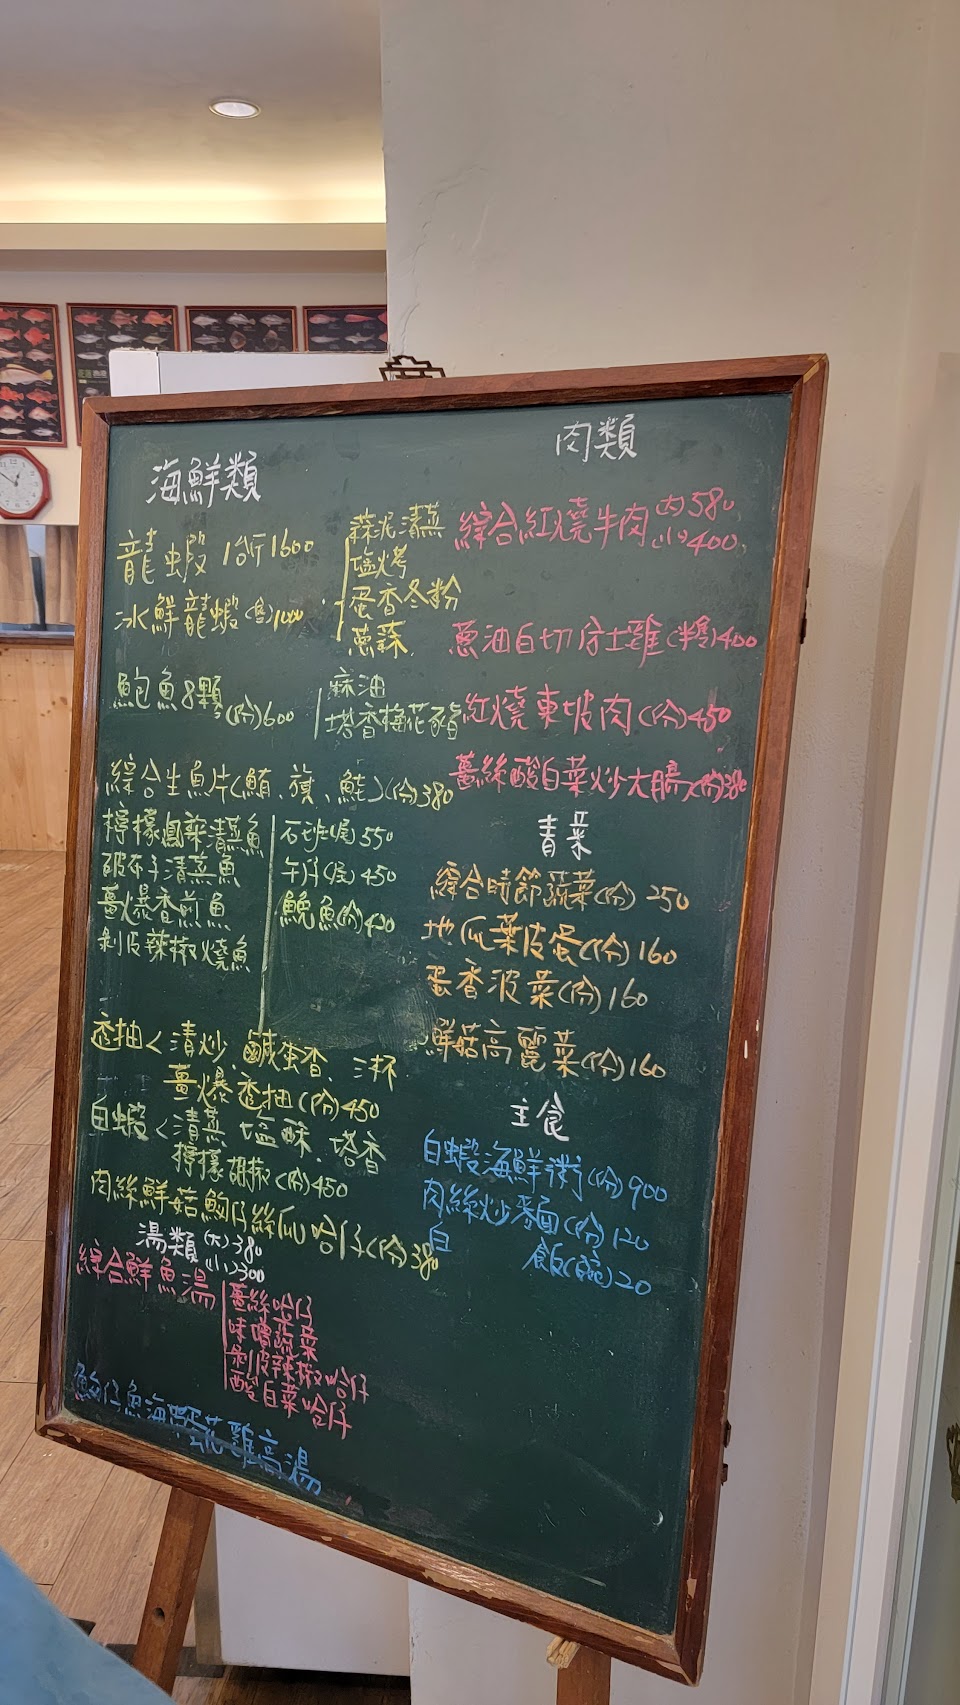 海鮮類
龍蝦 1台斤1600
冰鮮龍蝦(隻)1000
蒜泥清蒸
塩烤
蛋香冬粉
蔥蒜
鮑魚8顆(份)600
麻油
塔香梅花豬
綜合生魚片(鮪、旗、鮭)(份)380
檸檬鳳梨清蒸魚
破布子清蒸魚
薑爆香煎魚
剝皮辣椒燒魚
石斑(尾)550
午仔(尾)450
鮸魚(份)420
透抽<清炒、鹹蛋香、三杯
薑爆透抽(份)450
白蝦<清蒸、塩酥、塔香
檸檬胡椒(份)450
肉絲鮮菇魩仔絲瓜哈仔(份)380
湯類(大)380
(小)300
綜合鮮魚湯
薑絲哈仔
味噌蔬菜
剝皮辣椒哈仔
酸白菜哈仔
魩仔魚海菜蛋花雞高湯
肉類
綜合紅燒牛肉(大)580
(小)400
蔥油白切仿土雞(半隻)400
紅燒東坡肉(份)450
薑絲酸白菜炒大腸(份)380
青菜
綜合時節蔬菜(份)250
地瓜葉皮蛋(份)160
蛋香波菜(份)160
鮮菇高麗菜(份)160
主食
白蝦海鮮粥(份)900
肉絲炒麵(份)120
白 飯(碗)20